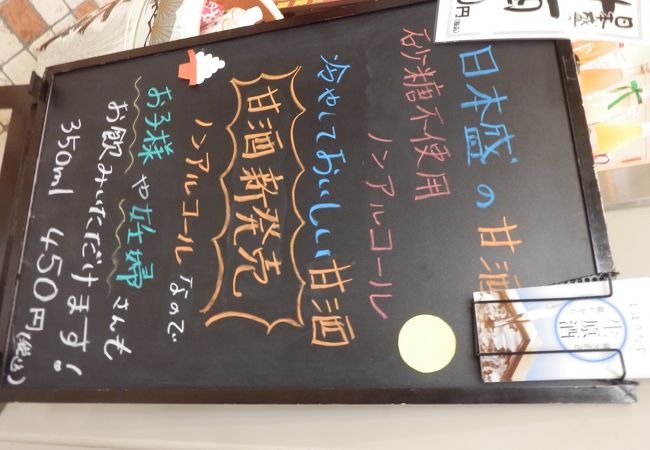 日本盛の甘酒
砂糖不使用
ノンアルコール
冷やしておいしい甘酒
甘酒新発売
ノンアルコールなので
お子様や妊婦さんも
お飲みいただけます!
350ml 450円(税込)
しぼりたて
生原酒
日本盛
円